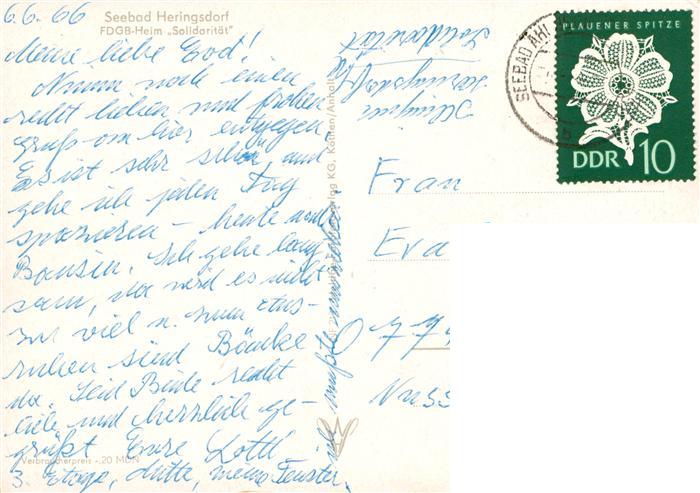 6.6.66
Seebad Heringsdorf
FDGB-Heim „Solidarität"
Meine liebe Godl!
Nimm noch einen
recht lieben und frohen
Gruß von hier entgegen
Es ist sehr schön, und
gehe ich jeden Tag
spazieren – heute nach
Bansin. Ich gehe lang
sam, da wird es nicht
zu viel u. zum Aus-
ruhen sind Bänke
da. Seid Beide recht
liebe und herzlich ge-
grüßt Eure Lottl.
3. Etage, dritte, meine Fenster,
ich mußte
Verbraucherpreis -.20 MDN
KG, Köthen/Anhalt
Heringsdorf
Solidarität
SEEBAD AHL
b
PLAUENER SPITZE
DDR 10
Frau
Eva
Nuss